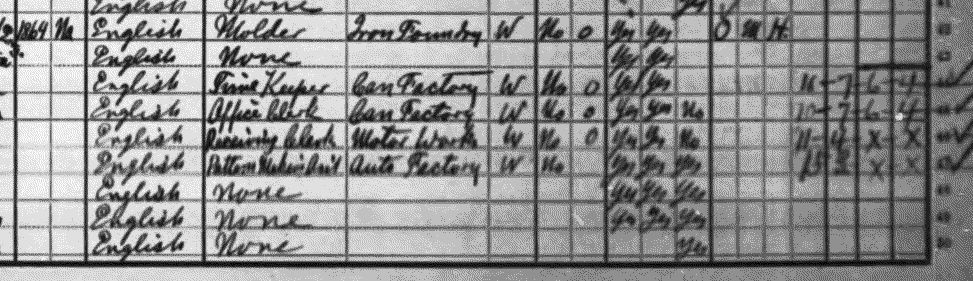 English None Yes
1864 Na English Molder Iron Foundry W No 0 Yes Yes O M H.
English None Yes Yes
English Time Keeper Can Factory W No 0 Yes Yes 11-7-6-4
English Office Clerk Can Factory W No 0 Yes Yes No 10-7-6-4
English Receiving Clerk Motor Works W No 0 Yes Yes No 11-4-X-X
English Auto Factory W No Yes Yes Yes X X
English None Yes Yes Yes
English None Yes Yes Yes
English None Yes 50